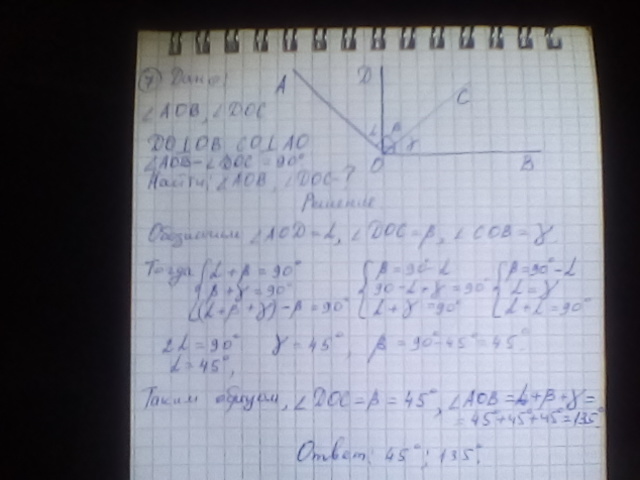 7) Дано:
∠AOB, ∠DOC
DO⊥OB, CO⊥AO
∠AOB-∠DOC=90°
Найти: ∠AOB, ∠DOC-?
A
D
C
α β γ
O
B
Решение
Обозначим ∠AOD=α, ∠DOC=β, ∠COB=γ
Тогда { α+β=90° { β=90°-α { β=90°-α
β+γ=90° 90-α+γ=90° α=γ
(α+β+γ)-β=90° α+γ=90° α+α=90°
2α=90° γ=45°, β=90°-45°=45°
α=45°,
Таким образом, ∠DOC=β=45°, ∠AOB=α+β+γ=
=45°+45°+45°=135°
Ответ: 45°; 135°.